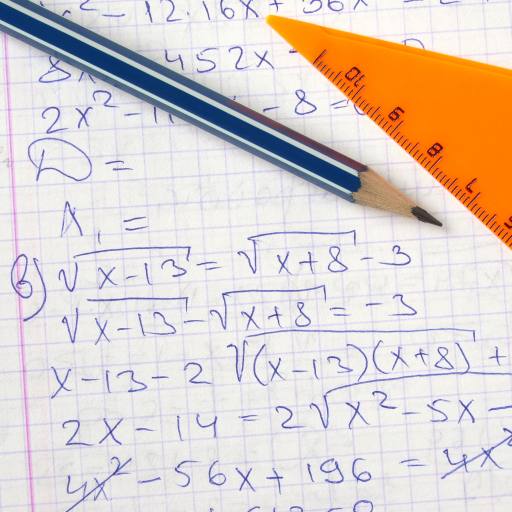 - 12.16x + 56x -
8x 452x -
2x² - - 8 =
D =
x₁ =
в) √(x-13) = √(x+8) - 3
√(x-13) - √(x+8) = -3
x - 13 - 2√((x-13)(x+8)) +
2x - 14 = 2√(x² - 5x -
4x² - 56x + 196 = 4x²
10
9
8
7